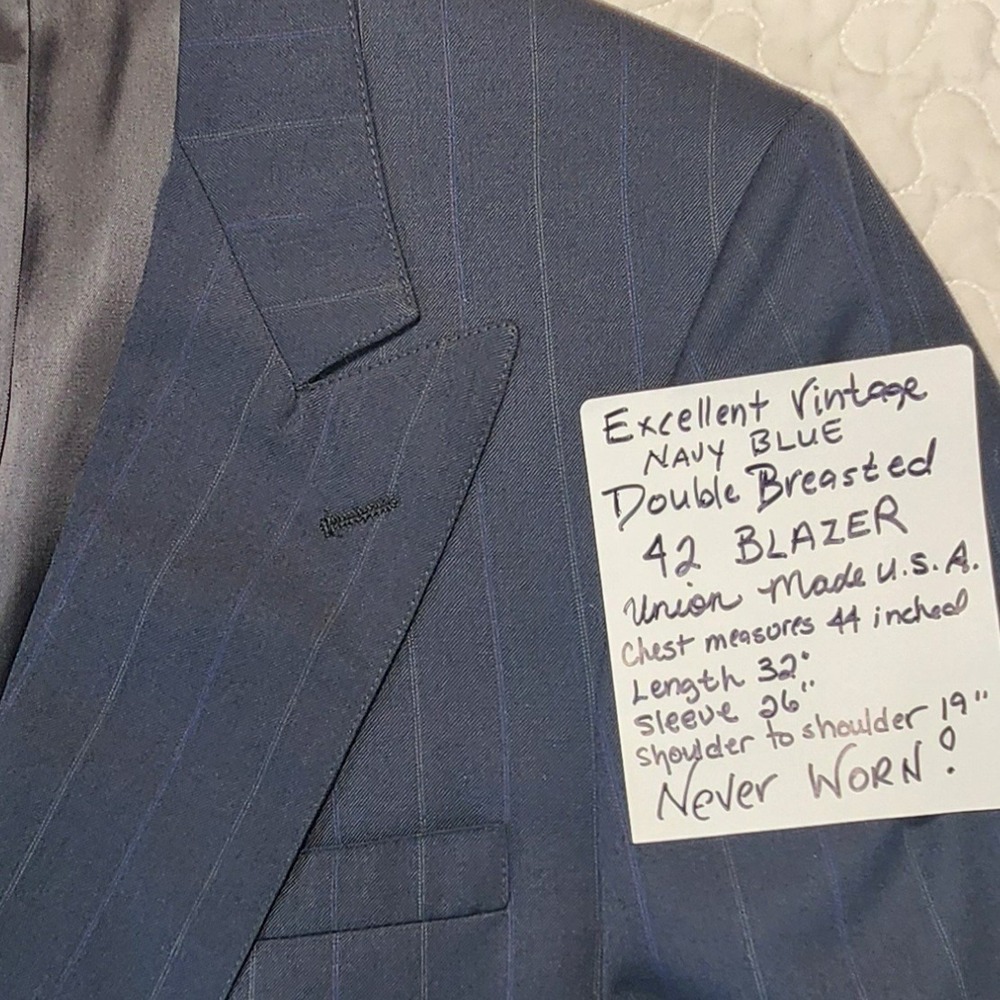 Excellent Vintage
NAVY BLUE
Double Breasted
42 BLAZER
Union Made U.S.A.
Chest measures 44 inched
Length 32"
Sleeve 26"
Shoulder to shoulder 19"
Never WORN!